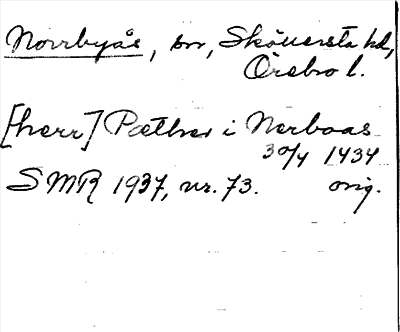 Norrbyås, sn, Sköllersta hd,
Örebro l.
[herr] Pæther i Nerboaas
30/4 1434
SMR 1937, nr. 73. orig.